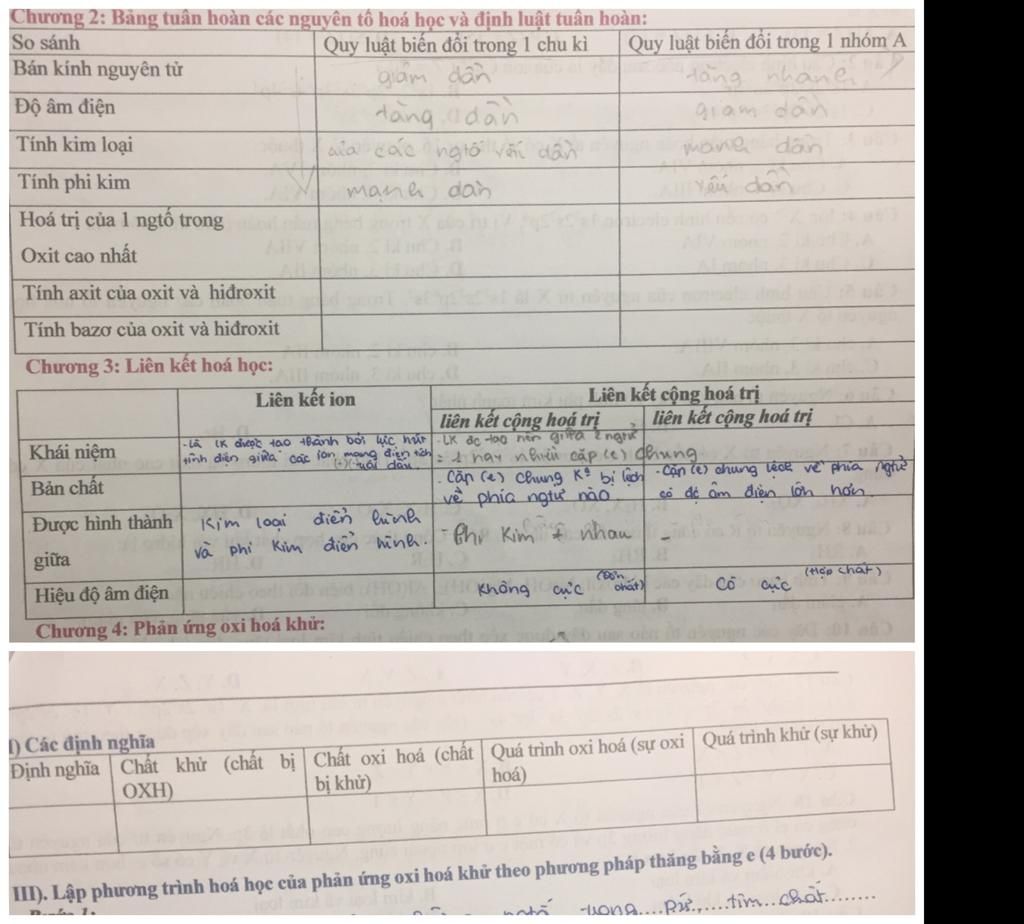 Chương 2: Bảng tuần hoàn các nguyên tố hoá học và định luật tuần hoàn:
So sánh Quy luật biến đổi trong 1 chu kì Quy luật biến đổi trong 1 nhóm A
Bán kính nguyên tử giảm dần tăng nhanh
Độ âm điện tăng dần giảm dần
Tính kim loại của các ngtố yếu dần mạnh dần
Tính phi kim mạnh dần yếu dần
Hoá trị của 1 ngtố trong
Oxit cao nhất
Tính axit của oxit và hiđroxit
Tính bazơ của oxit và hiđroxit
Chương 3: Liên kết hoá học:
Liên kết ion Liên kết cộng hoá trị
liên kết cộng hoá trị liên kết cộng hoá trị
Khái niệm - Là lk được tạo thành bởi lực hút - LK đc tạo nên giữa 2 ngtử
tĩnh điện giữa các ion mang điện tích = 1 hay nhiều cặp (e) chung
trái dấu.
Bản chất - Cặp (e) chung K° bị lệch - Cặp (e) chung lệch về phía ngtử
về phía ngtử nào. có độ âm điện lớn hơn.
Được hình thành Kim loại điển hình - Phi kim ≠ nhau -
giữa và phi kim điển hình.
Hiệu độ âm điện Không cực (Đơn chất) Có cực (Hợp chất)
Chương 4: Phản ứng oxi hoá khử:
I) Các định nghĩa
Định nghĩa Chất khử (chất bị Chất oxi hoá (chất Quá trình oxi hoá (sự oxi Quá trình khử (sự khử)
OXH) bị khử) hoá)
III). Lập phương trình hoá học của phản ứng oxi hoá khử theo phương pháp thăng bằng e (4 bước).
Bước 1: ngtố trong....pứ,....tìm..chất........